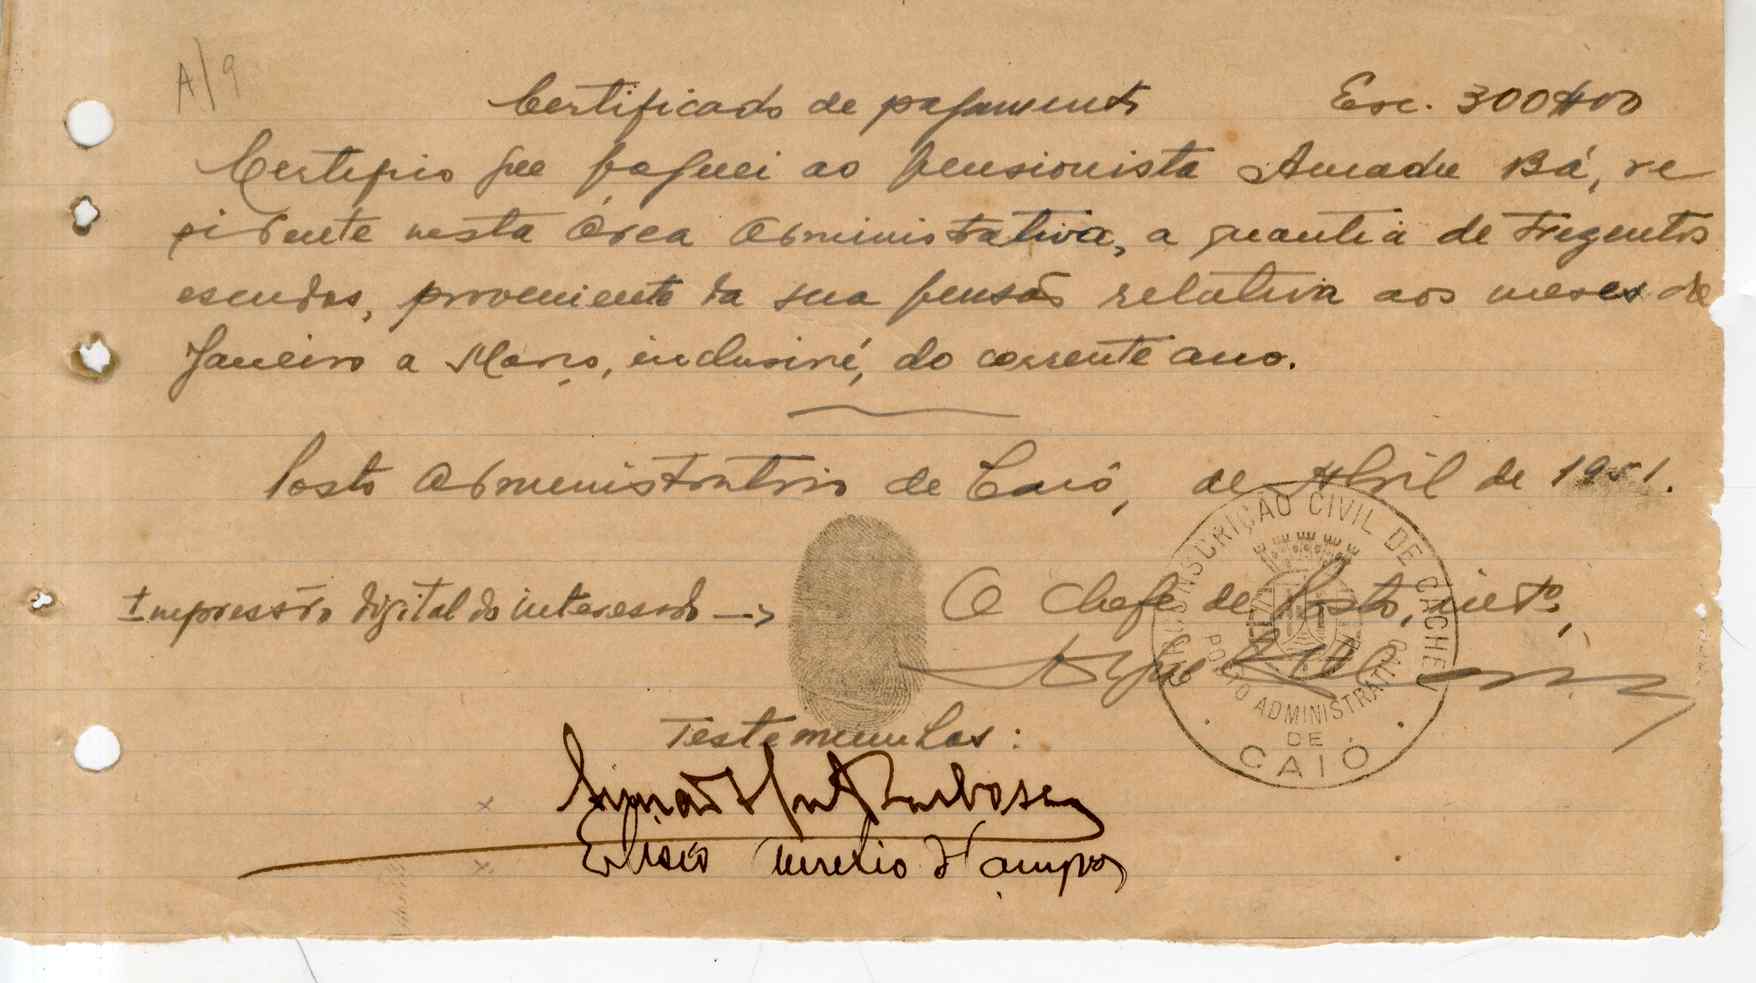 A/9
Certificado de pagamento Esc. 300$00
Certifico que paguei ao pensionista Amadu Bá, re
sidente nesta área administrativa, a quantia de trezentos
escudos, proveniente da sua pensão relativa aos meses de
Janeiro a Março, inclusivé, do corrente ano.
Posto Administrativo de Caió, de Abril de 1951.
Impressão digital do interessado -->
O Chefe de Posto, intº,
CIRCUNSCRIÇÃO CIVIL DE CACHEU
POSTO ADMINISTRATIVO
DE
CAIÓ
Testemunhas:
x Barbosa
x Elisio Aurelio d'Campos